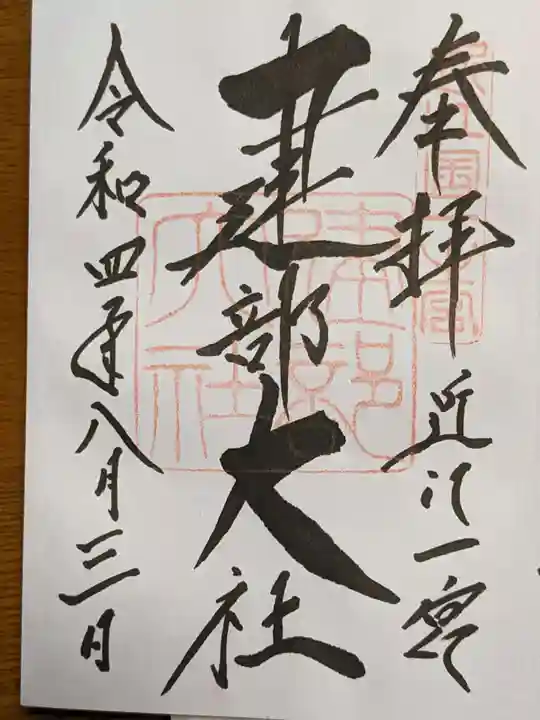 奉拝 近江一宮
建部大社
令和四年八月三日
建部
大社